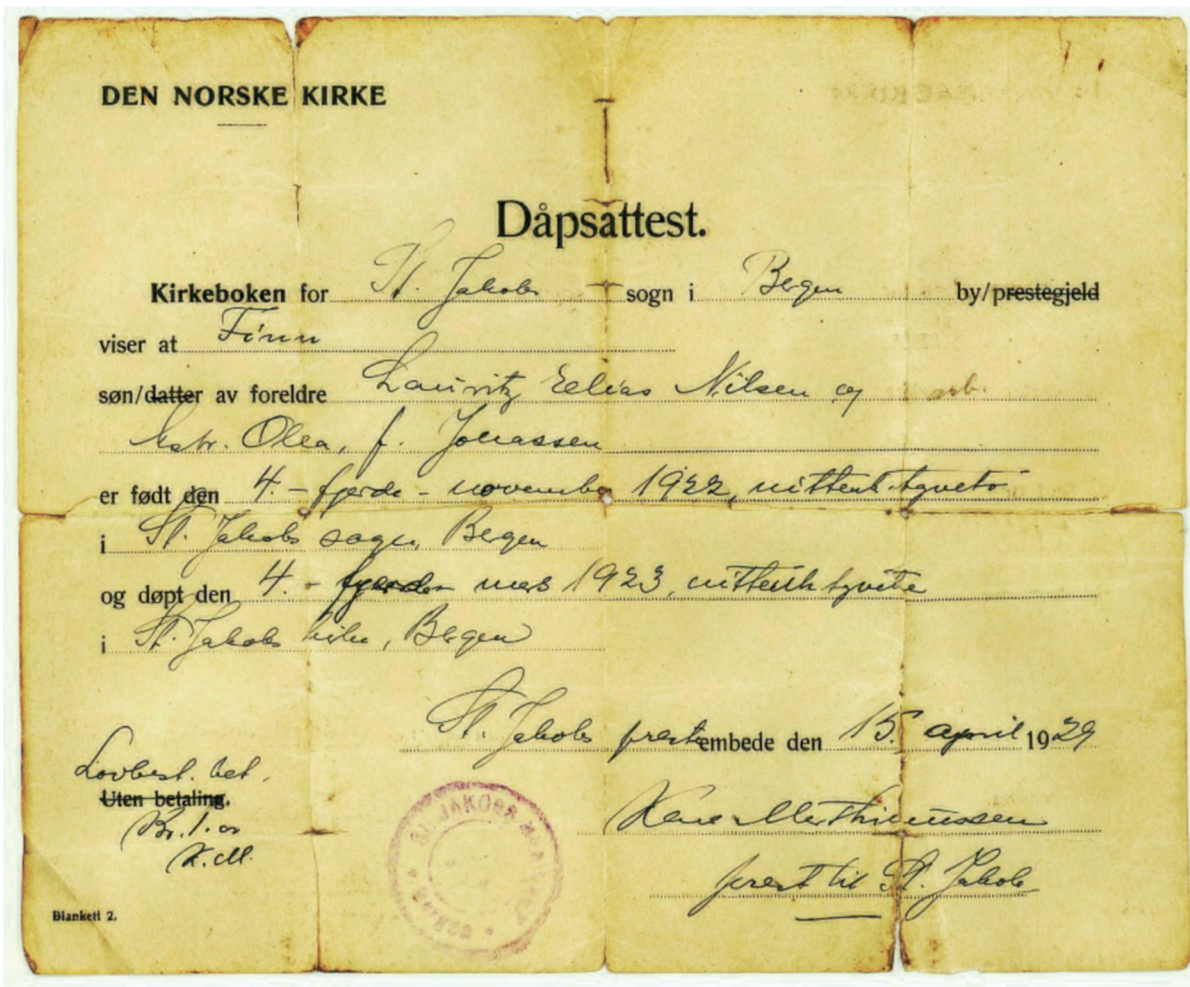 DEN NORSKE KIRKE
Dåpsattest.
Kirkeboken for St. Jakobs sogn i Bergen by/prestegjeld
viser at Finn
søn/datter av foreldre Lauritz Elias Nilsen og arb.
Olea, f. Jonassen
er født den 4. - fjerde - november 1922, nittentyveto
i St. Jakobs sogn, Bergen
og døpt den 4. - fjerde mars 1923,
i St. Jakobs kirke, Bergen
St. Jakobs prestembede den 15. april 1929
Lovbest. bet.
Uten betaling.
Kr. 1.00
K. M.
ST. JAKOBS
BERGEN
prest til St. Jakob
Blankett 2.